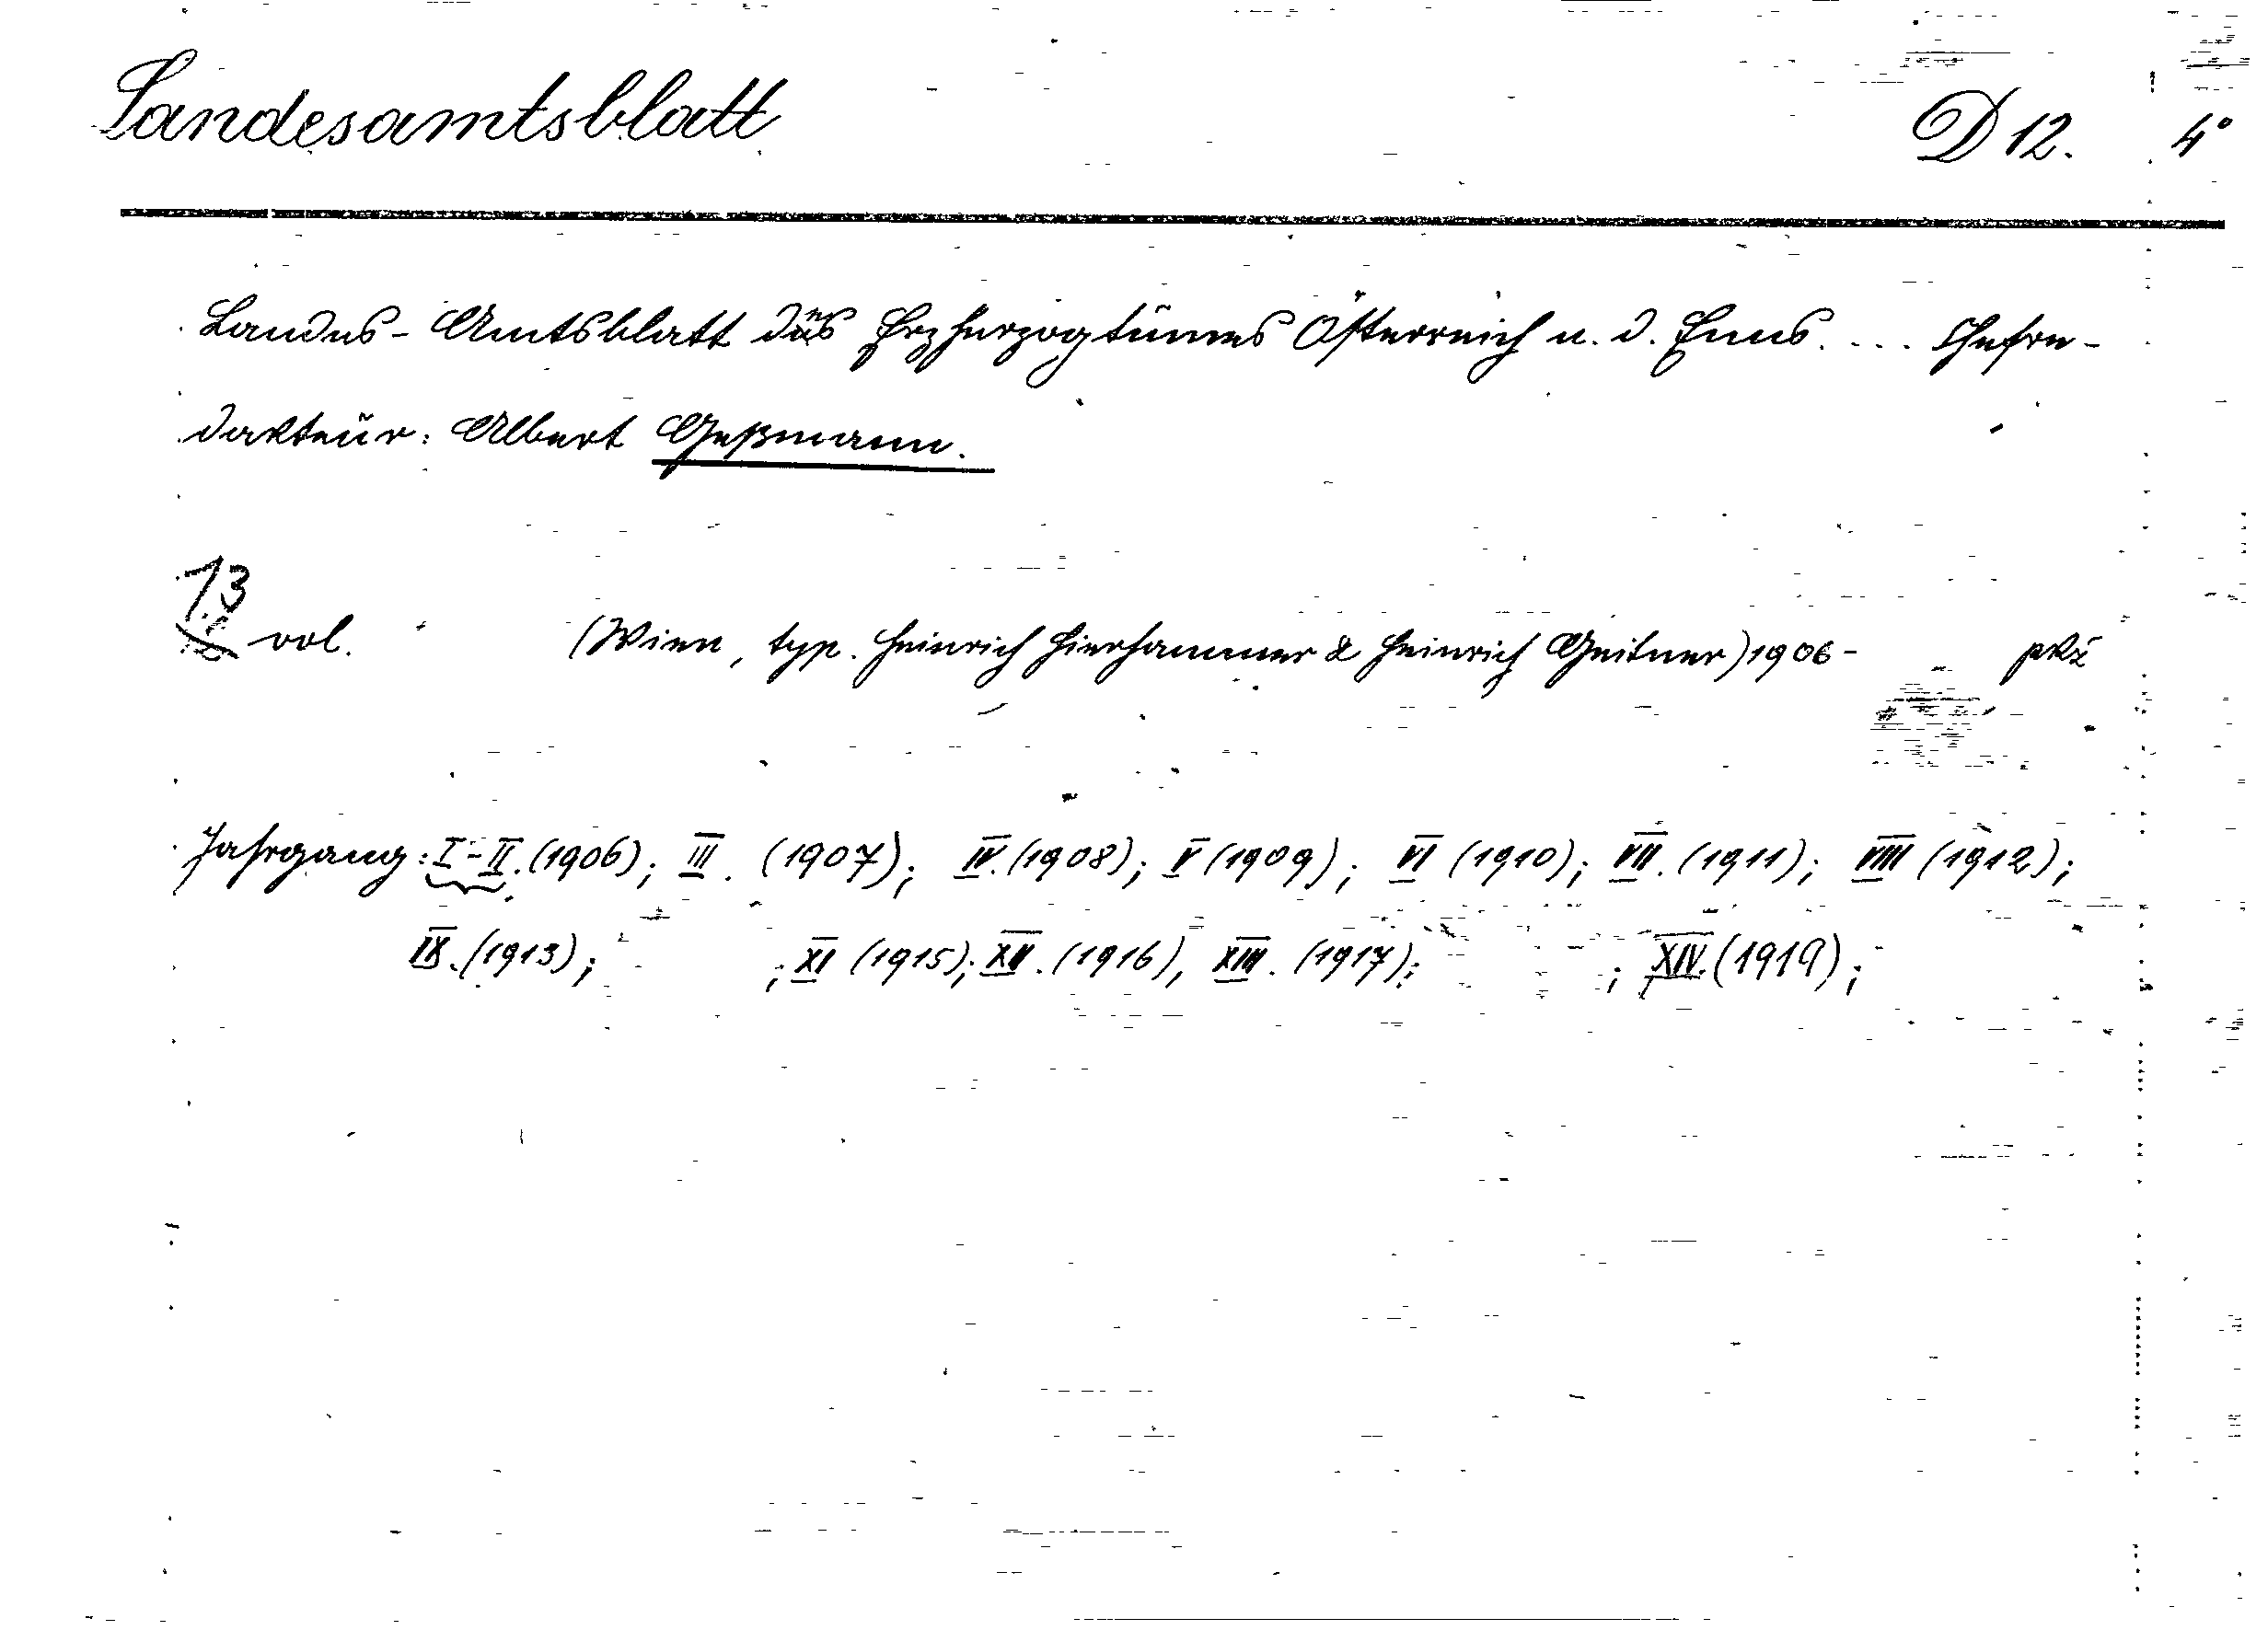 Landesamtsblatt D 12. 4°
Landes-Amtsblatt des Erzherzogtumes Österreich u. d. Enns. ... Chefre-
dakteur: Albert Geßmann.
13
vol. (Wien, typ. Heinrich Hierhammer & Heinrich Geitner) 1906-
Jahrgang: I-II. (1906); III. (1907); IV. (1908); V (1909); VI (1910); VII. (1911); VIII (1912);
IX. (1913); ; XI (1915); XII. (1916), XIII. (1917); ; XIV. (1919);